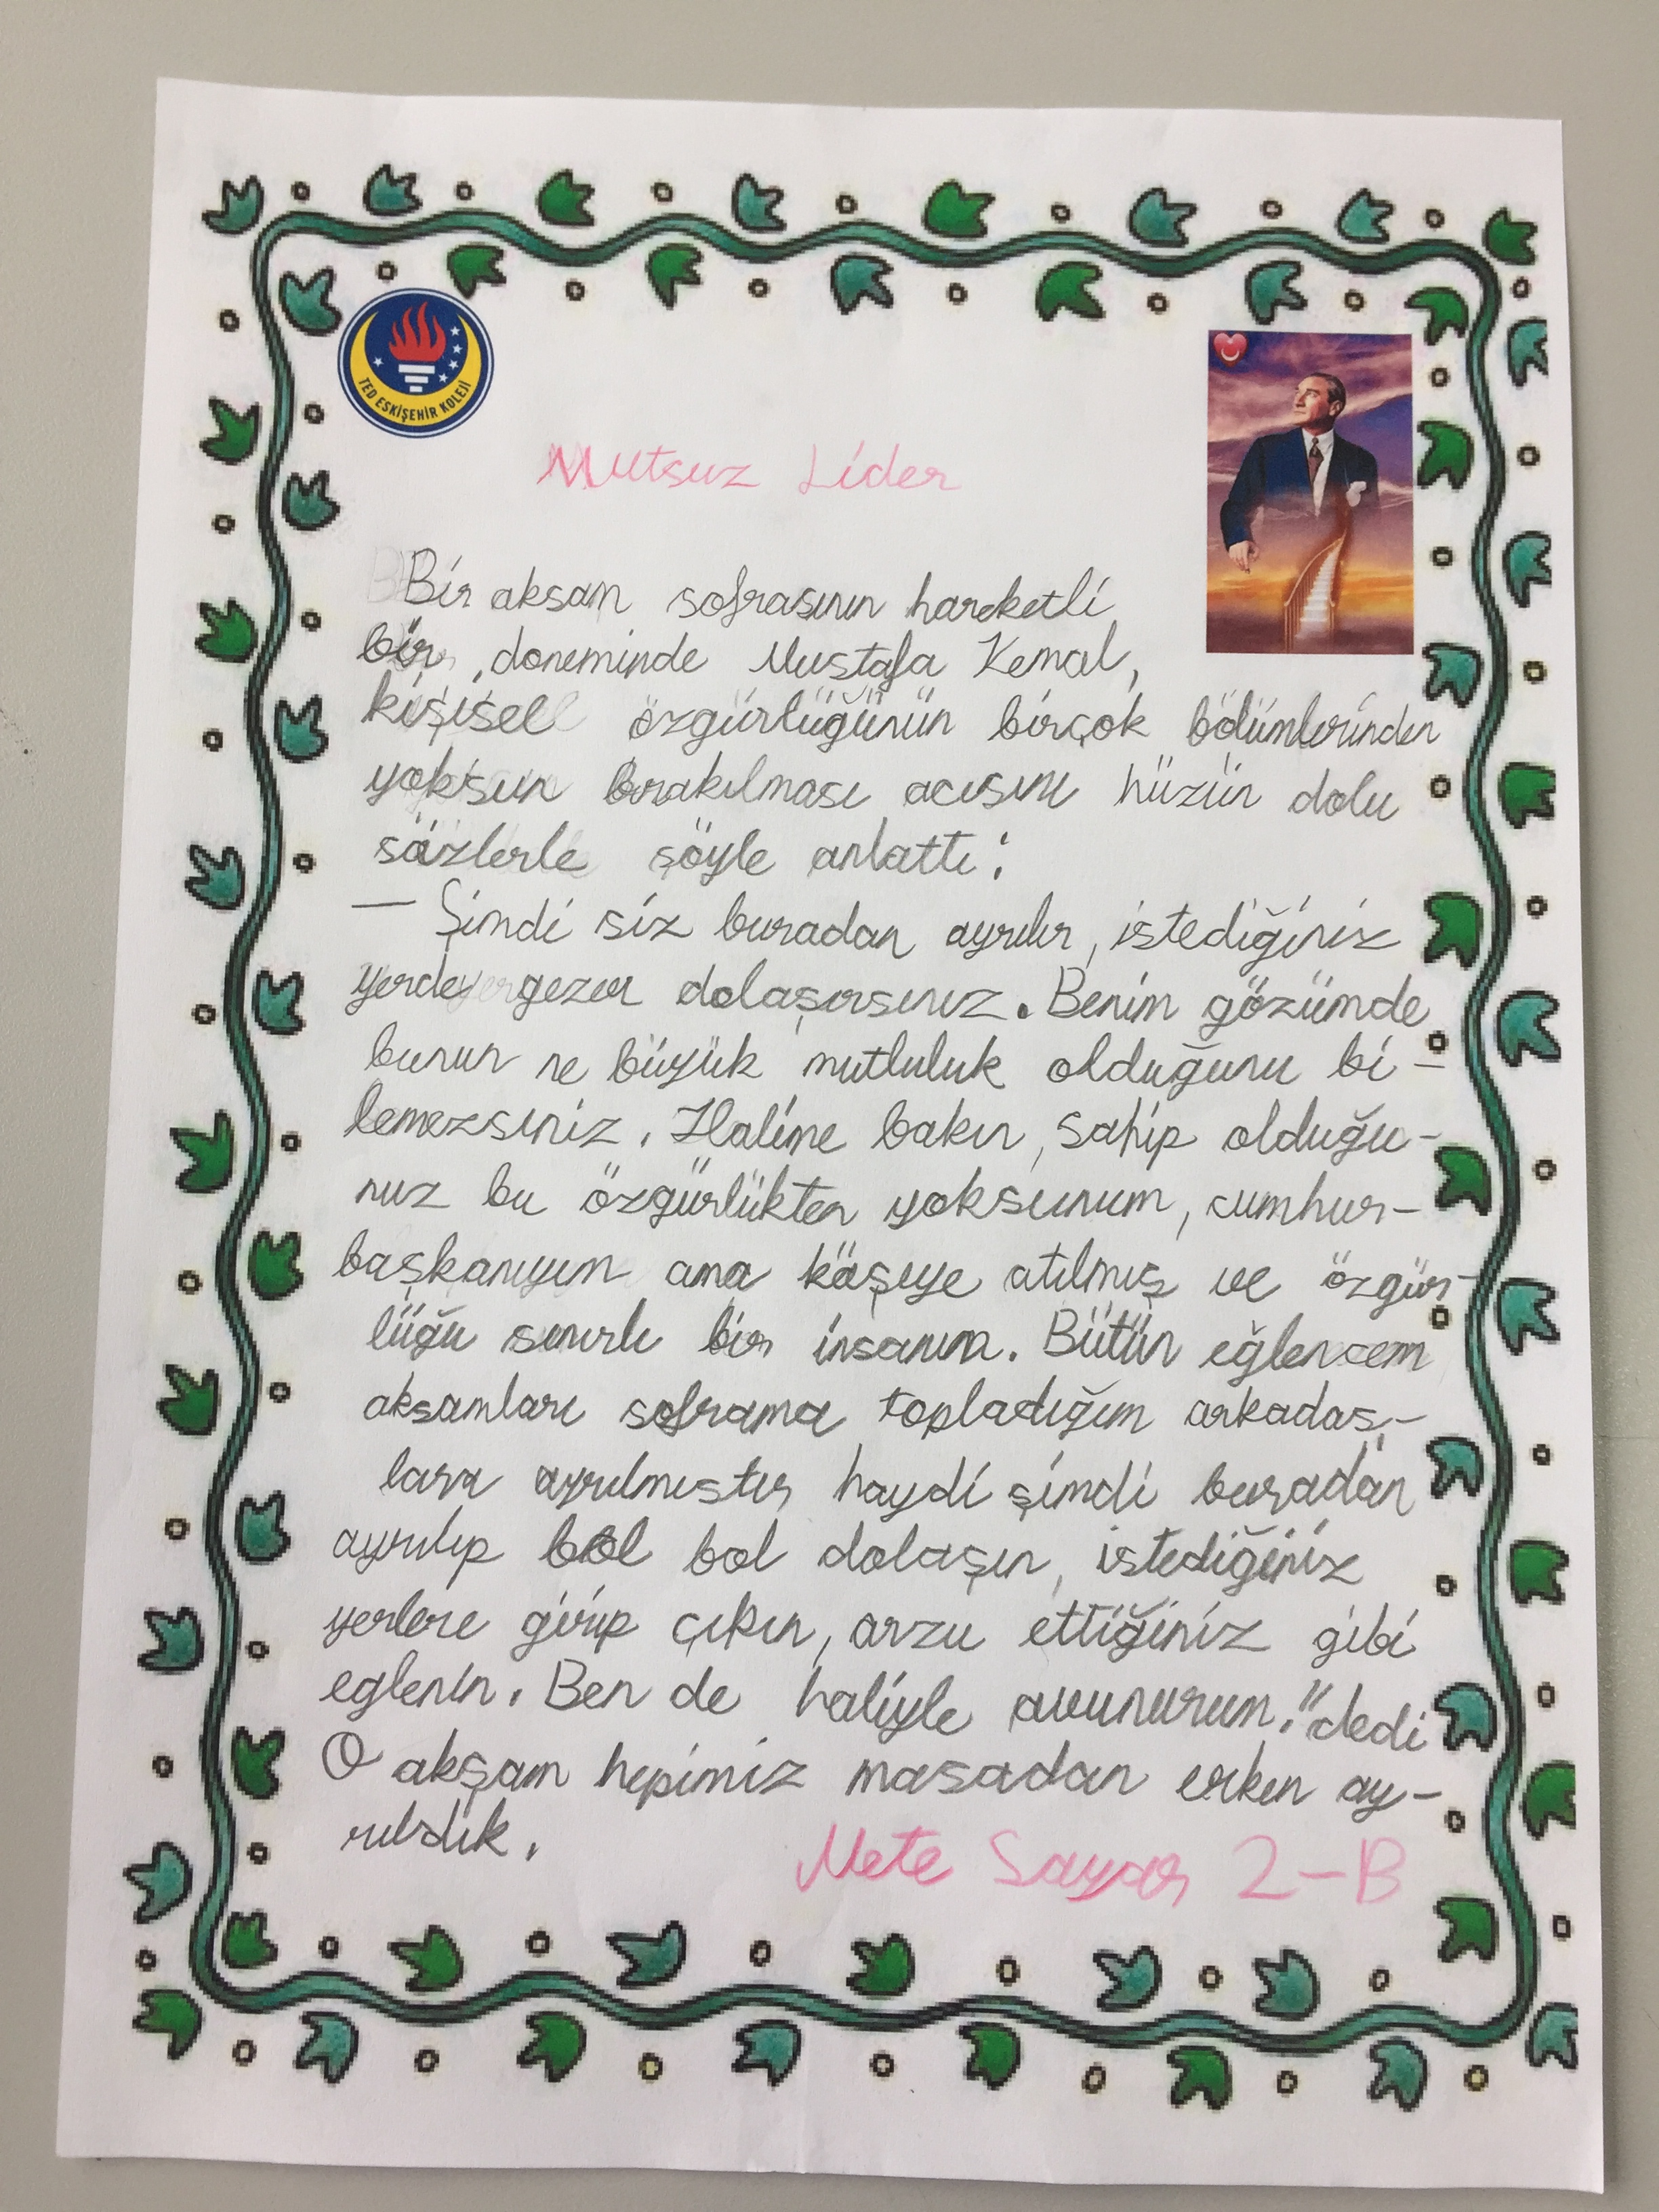 TED ESKİŞEHİR KOLEJİ
Mutsuz Lider
Bir aksam sofrasının hareketli
bir doneminde Mustafa Kemal,
kişisel özgürlüğünün birçok bölümlerinden
yoksun bırakılması acısını hüzün dolu
sözlerle şöyle anlattı:
— Şimdi siz buradan ayrılır, istediğiniz
yerde gezer dolaşırsınız. Benim gözümde
bunun ne büyük mutluluk olduğunu bi-
lemezsiniz. Halime bakın, sahip olduğu-
nuz bu özgürlükten yoksunum, cumhur-
başkanıyım ama köşeye atılmış ve özgür-
lüğü sınırlı bir insanım. Bütün eğlencem
aksamları soframa topladığım arkadaş-
lara ayrılmıstır haydi şimdi buradan
ayrılıp bol bol dolaşın, istediğiniz
yerlere girip çıkın, arzu ettiğiniz gibi
eglenin. Ben de haliyle avunurum." dedi
O akşam hepimiz masadan erken ay-
rıldık.
Mete Sayar 2-B